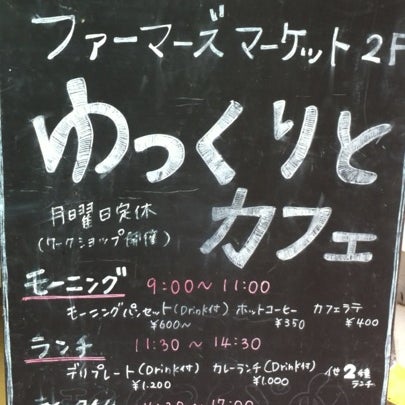 ファーマーズマーケット 2F
ゆっくりと
カフェ
月曜日定休
(ワークショップ開催)
モーニング 9:00〜11:00
モーニングパンセット(Drink付) ホットコーヒー カフェラテ
¥600〜 ¥350 ¥400
ランチ 11:30〜14:30
デリプレート(Drink付) カレーランチ(Drink付) 他2種
¥1,200 ¥1,000 ランチ
17:00